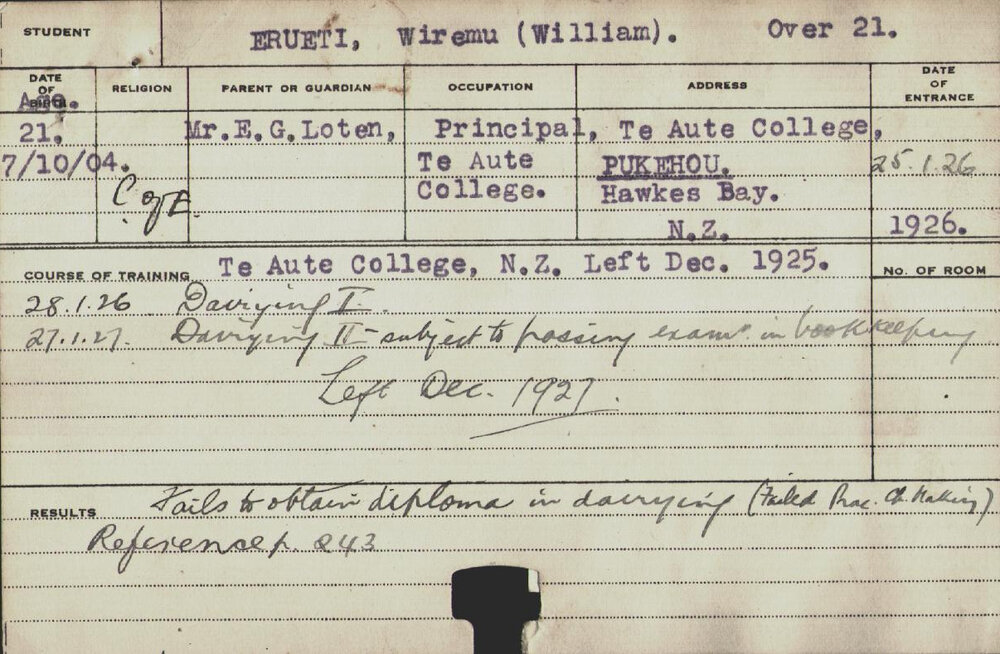 STUDENT ERUETI, Wiremu (William). Over 21.
DATE OF BIRTH Age. RELIGION PARENT OR GUARDIAN OCCUPATION ADDRESS DATE OF ENTRANCE
21. Mr.E.G.Loten, Principal, Te Aute College,
7/10/04. Te Aute PUKEHOU. 25.1.26
C of E. College. Hawkes Bay.
N.Z. 1926.
COURSE OF TRAINING Te Aute College, N.Z. Left Dec. 1925. No. OF ROOM
28.1.26 Dairying I.
27.1.27. Dairying II - subject to passing examn. in bookkeeping
Left Dec. 1927.
RESULTS Fails to obtain diploma in dairying (Failed Prac. Ch. Making)
Reference p. 243